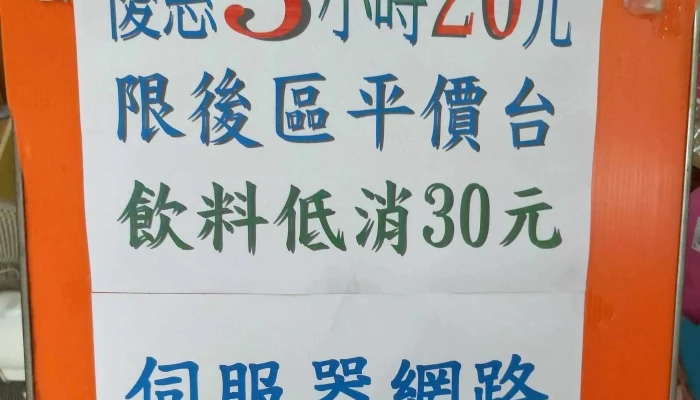 優惠3小時20元
限後區平價台
飲料低消30元
伺服器網路